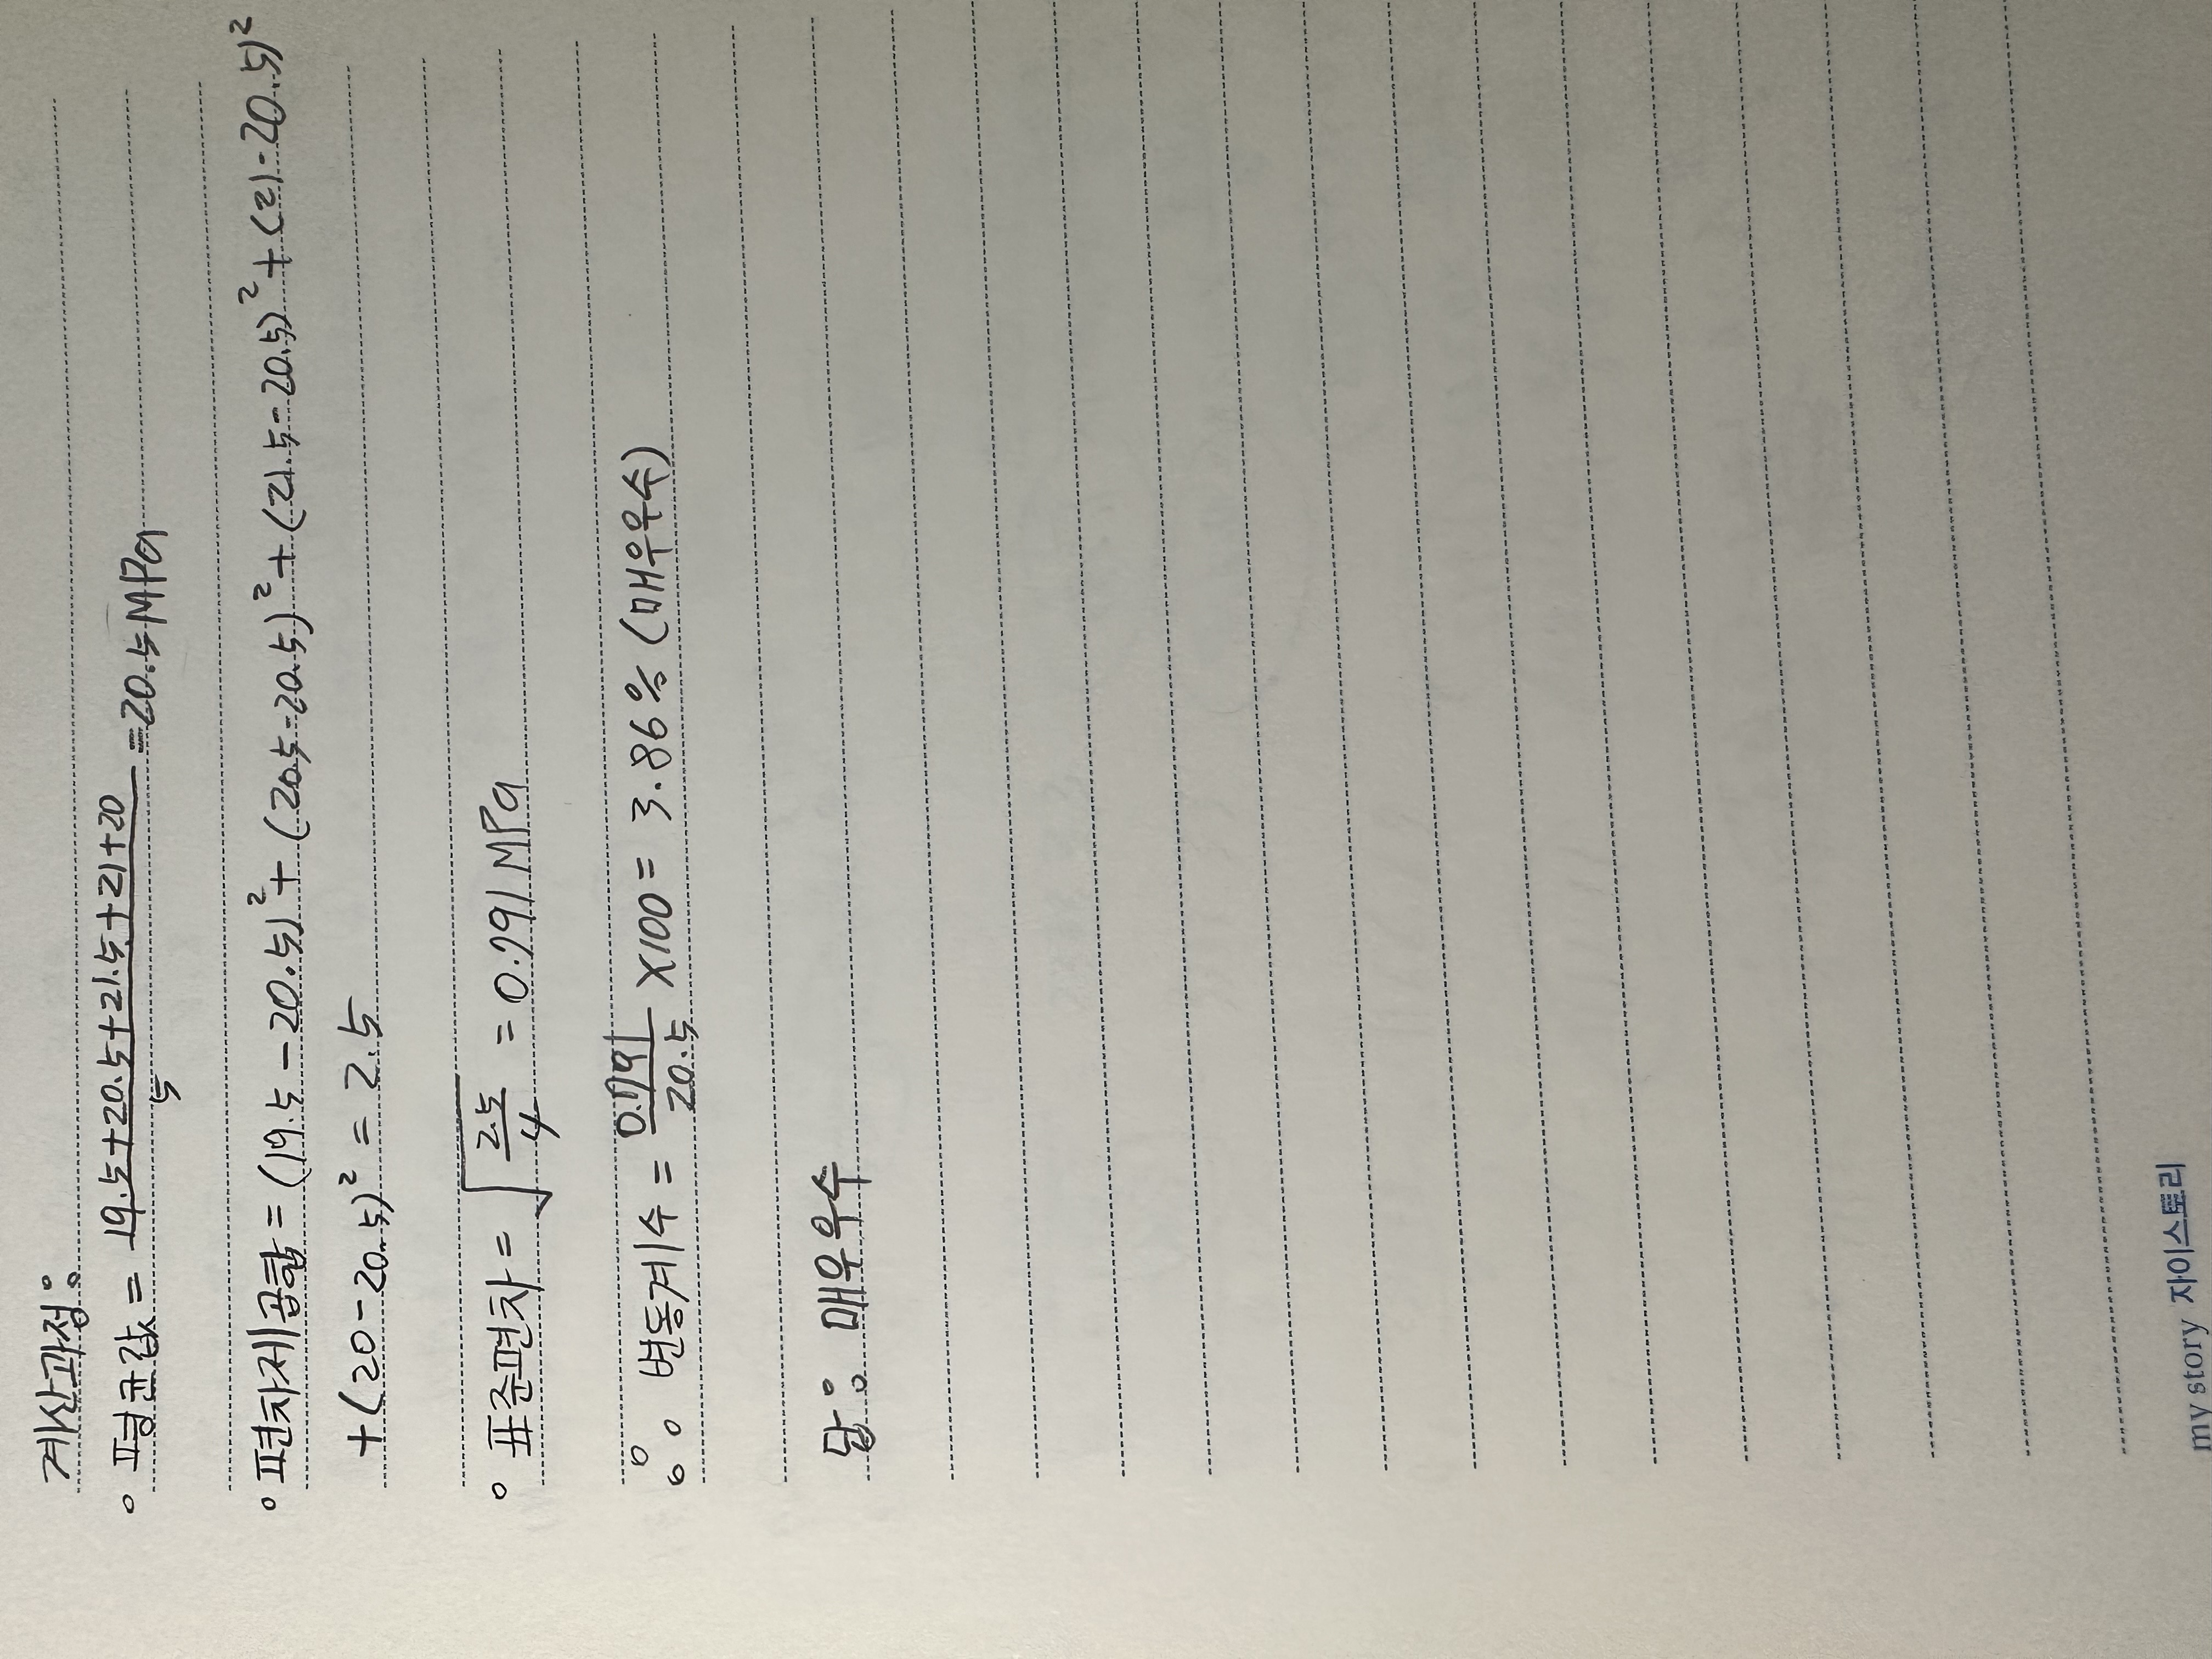 계산과정:
○ 평균값 = 19.5+20.5+21.5+21+20 / 5 = 20.5MPa
○ 편차제곱합 = (19.5-20.5)² + (20.5-20.5)² + (21.5-20.5)² + (21-20.5)²
+(20-20.5)² = 2.5
○ 표준편차 = √2.5/4 = 0.791MPa
∴ ○ 변동계수 = 0.791/20.5 X100 = 3.86% (매우우수)
답: 매우우수
my story 자이스토리